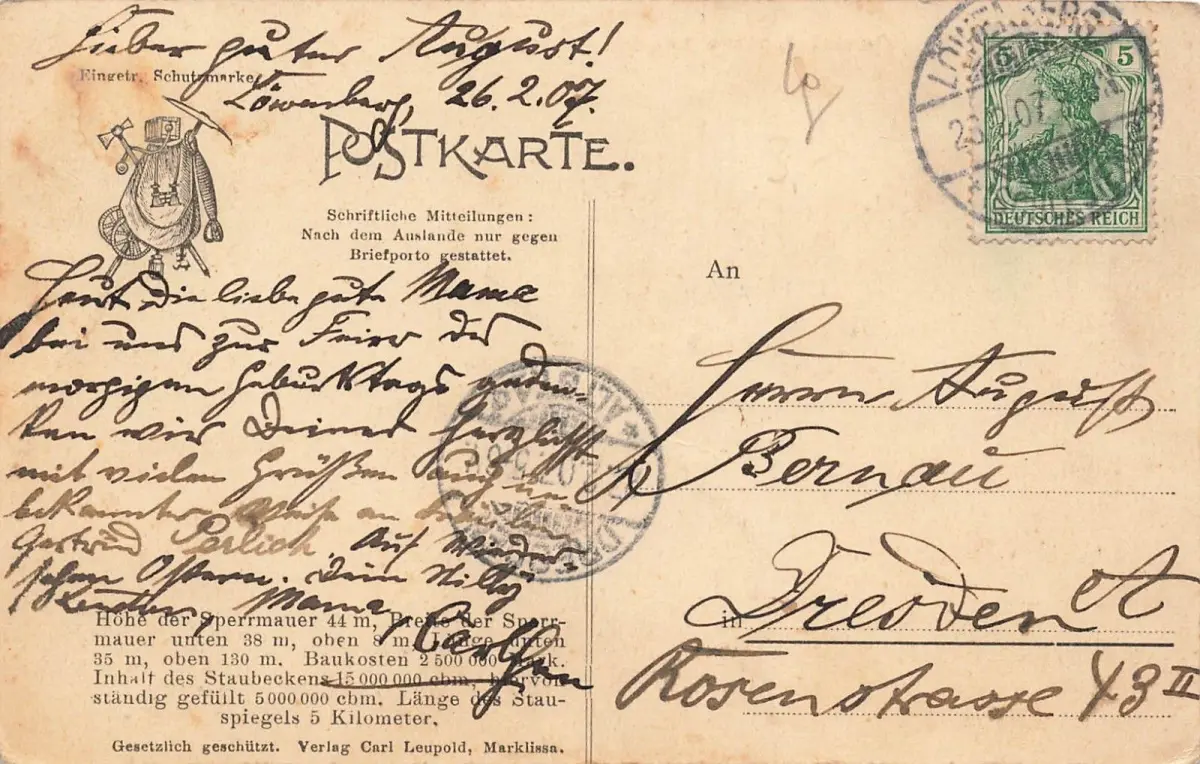 Lieber guter August!
Eingetr. Schutzmarke
Löwenberg, 26.2.07.
POSTKARTE.
Schriftliche Mitteilungen:
Nach dem Auslande nur gegen
Briefporto gestattet.
LÖWENBERG
5 5
DEUTSCHES REICH
An
Herrn August
Bernau
in Dresden A
Rosenstrasse 43 II
die liebe gute Mama
bei uns zur Feier des
morgigen Geburtstags geden-
ken wir Deiner herzlichst
mit vielen Grüßen auch
bekannter Weise an
Gertrud Perlich. Auf Wieder-
sehen Ostern. Dein Willy
Mama
ALTSTADT
DRESDEN
Höhe der Sperrmauer 44 m, Breite der Sperr-
mauer unten 38 m, oben 8 m. Länge unten
35 m, oben 130 m. Baukosten 2 500 000 Mark.
Inhalt des Staubeckens 15 000 000 cbm, hiervon
ständig gefüllt 5 000 000 cbm. Länge des Stau-
spiegels 5 Kilometer.
Gesetzlich geschützt. Verlag Carl Leupold, Marklissa.